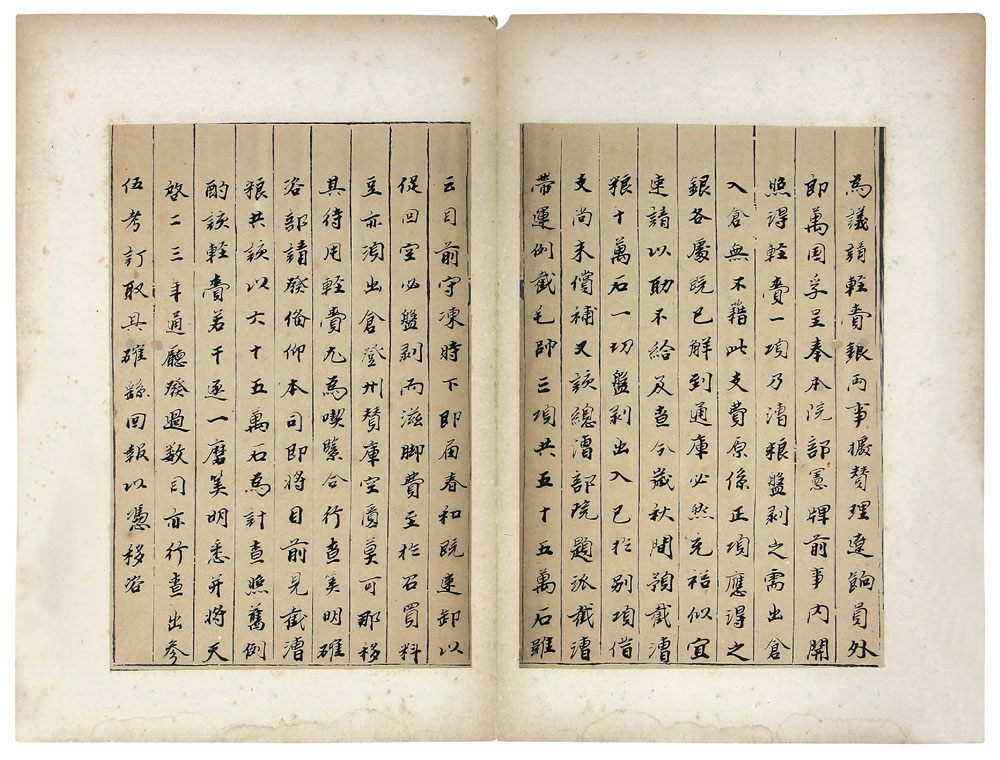 為議請輕賫銀兩事據賛理遼餉員外
即萬國孚呈奉本院部憲牌前事內開
照得輕賫一項乃漕粮盤剝之需出倉
入倉無不藉此支費原係正項應得之
銀各處既已觧到通庫必然充裕似宜
速請以助不給及查今歲秋間預截漕
粮十萬石一切盤剝出入已於別項借
支尚未償補又該總漕部院題派截漕
帶運例截毛帥三項共五十五萬石雖
云目前守凍時下即届春和既速卸以
促回空必盤剝而滋脚費至於召買料
豆亦須出倉登州賛庫空匱莫可那移
其待用輕賫尤為喫緊合行查筭明確
咨部請發俻仰本司即將目前見截漕
粮共該以六十五萬石為計查照舊例
酌該輕賫若干逐一磨筭明悉并將天
啓二三年通廳發過數目亦行查出參
伍考訂取具確繇回報以憑移咨